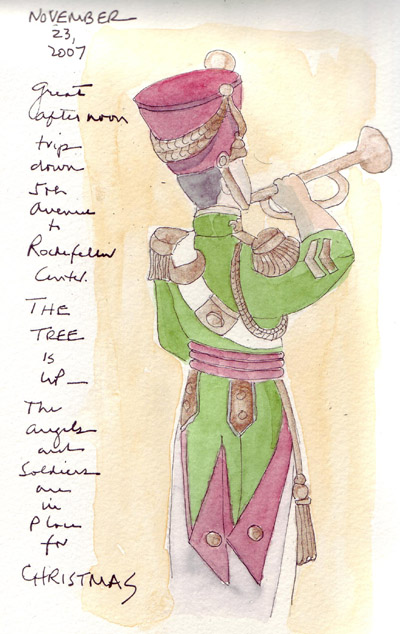 NOVEMBER
23,
2007
Great
afternoon
trip
down
5th
Avenue
to
Rockefeller
Center.
THE
TREE
is
UP —
The
angels
and
Soldiers
are
in
Place
for
CHRISTMAS